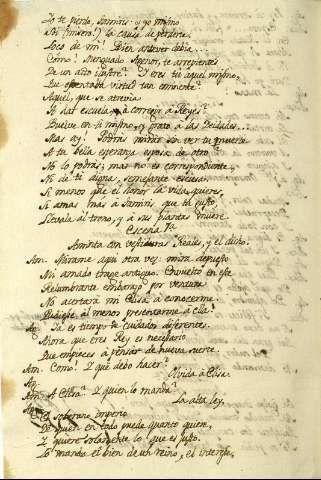 Yo te pierdo, Tamiris: y yo mismo
Soy (misero!) la causa de perderte.
Loco de mi! Bien antever debia...
Como! Menguado Agenor, te arrepientes
De un acto ilustre? Y eres tu aquel mismo,
Que ostentaba virtud tan eminente?
Aquel, que se atrevia
A dar escuela, y à corregir à Reyes?
Buelve en ti mismo, y grato à las Deidades...
Mas ay! Podrás mirar sin ver tu muerte
A tu bella esperanza esposa de otro?
No lo podrás; mas no es correspondiente,
Ni de ti digna, semejante escusa.
Si menos que el honor la vida quieres,
Si amas mas à Tamiris, que tu gusto,
Llevala al trono, y à sus plantas muere.
Escena 7ª
Aminta con vestiduras Reales, y el dicho.
Am. Mirame aqui otra vez: mira depuesto
Mi amado trage antiguo. Embuelto en este
Relumbrante embarazo por ventura
No acertará mi Elisa à conocerme.
Pudiesse al menos presentarme à ella!
Ag. Ya es tiempo de cuidados diferentes.
Ahora que eres Rey es necesario
Que empieces à pensar de nueva suerte.
Am. Como! Y que debo hacer?
Ag. Olvida à Elisa.
Am. A Elisa? Y quien lo manda?
Ag. La alta ley,
O soberano imperio
De quien en todo puede quanto quiere,
Y quiere solamente lo que es justo.
Lo manda el bien de un reino, el interes,